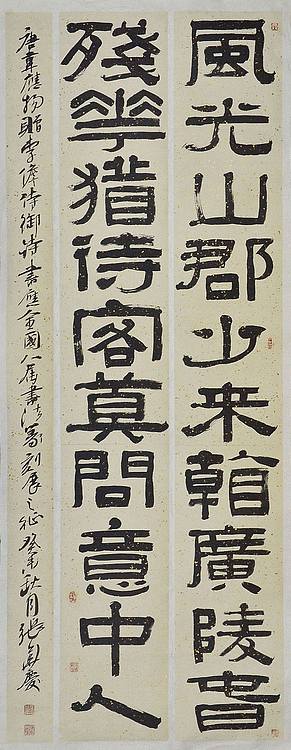 風光山郡少来看廣陵春
殘華猶待客莫問意中人
唐韋應物贈李儋侍御詩書應全國八届書法篆刻展之征癸未秋月張慶